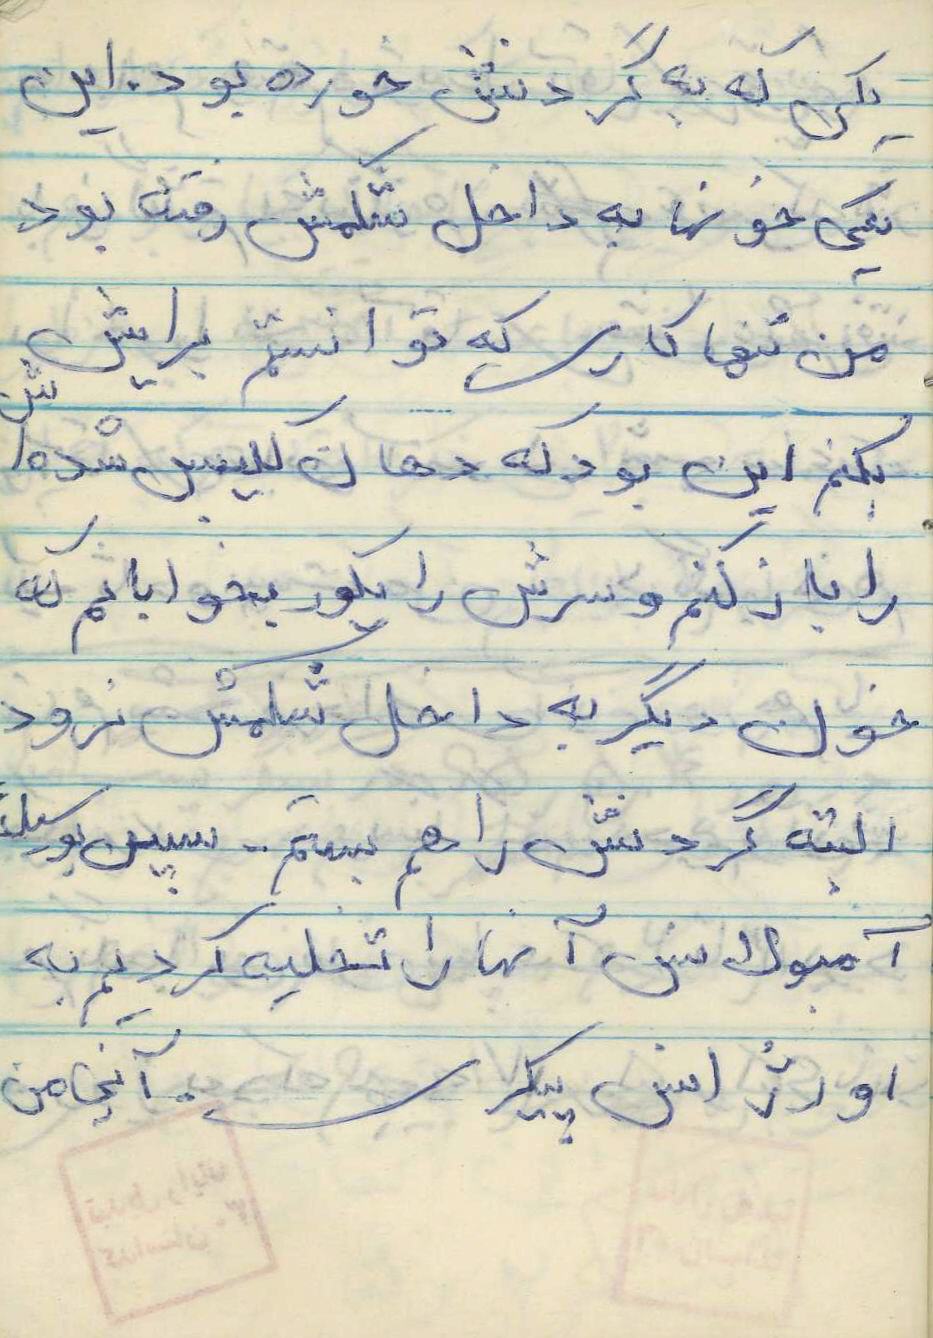 یکی که به گردنش خورده بود. این
یکی خونها به داخل شکمش رفته بود
من تنها کاری که توانستم برایش
بکنم این بود که دهان کلیپس شده اش
را باز کنم و سرش را یکور بخوابانم که
خون دیگر به داخل شکمش نرود
البته گردنش را هم بستم. سپس بوسیله
آمبولانس آنها را تخلیه کردیم به
اورژانس پیکری. آنجا من